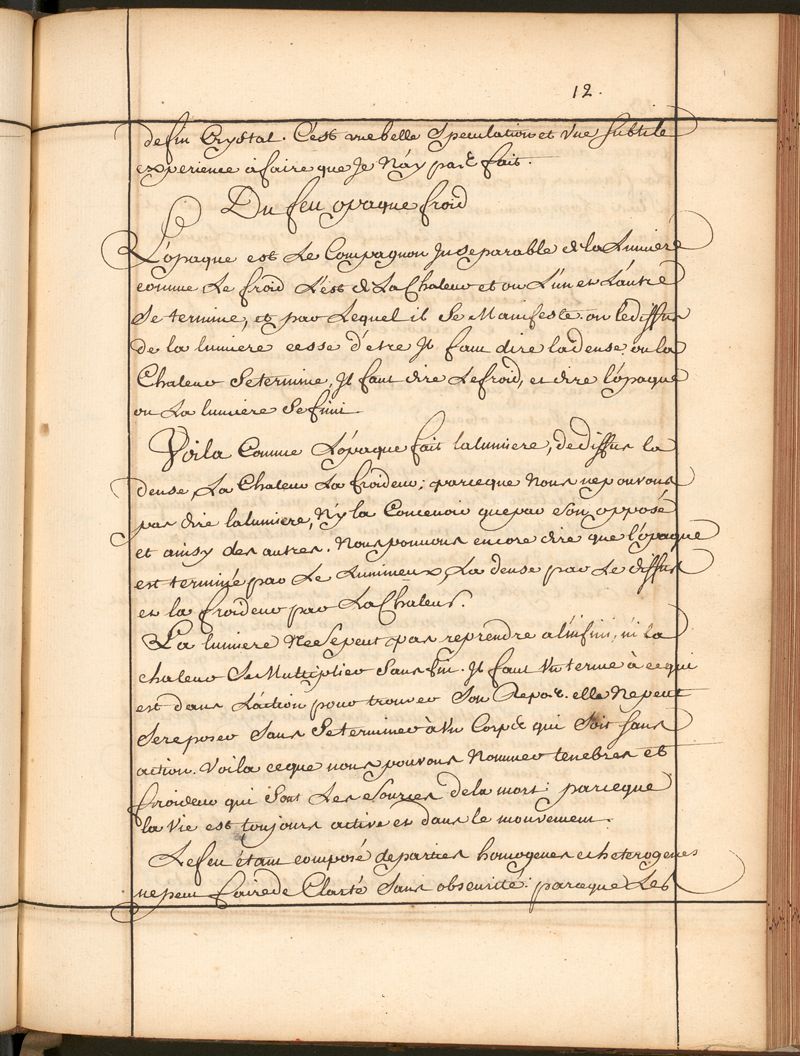 12.
de fin Crystal. C'est une belle Speculation et Vne Subtile
experience à faire que Je N'ay pas fait.
Du feu opaque froid
L'opaque est Le Compagnon Inseparable de la Lumiere
comme Le froid L'est de La Chaleur et ou L'un et L'autre
Se termine, et par Lequel il Se Manifeste. ou le diffus
De la lumiere cesse d'etre Il faut dire la dense. ou la
Chaleur Se termine, Il faut dire Le froid, et dire l'opaque
ou La lumiere Se fini
Voila Comme L'opaque fait la lumiere, de diffus la
dense, La Chaleur La froideur; parceque Nous ne pouvons
pas dire la lumiere, N'y la Concevoir que par Son opposé
et ainsy des autres. Nous pouvons encore dire que l'opaque
est terminée par Le Lumineux, La dense par Le diffus
et la froideur par La Chaleur.
La lumiere Ne Se peut pas reprendre à l'infini, ni La
chaleur Se Multiplier Sans fin. Il faut Vn terme à ce qui
est dans L'action pour trouver Son Repos. elle Ne peut
Se reposer Sans Se terminer à Vn Corps qui Soit Sans
action. Voila ce que nous pouvons Nommer tenebres et
froideur qui Sont Les Sources de la mort: parceque
la Vie est toujours active et dans le mouvement.
Le feu étant composé de parties homogenes et heterogenes
ne peut faire de Clarté Sans obscurité: parceque Les